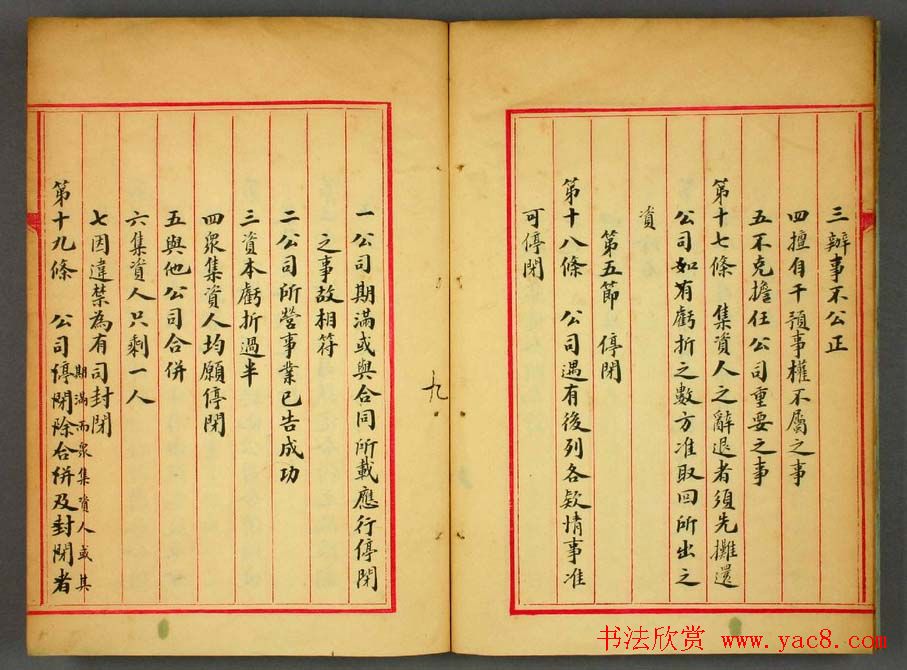 三辦事不公正
四擅自干預事權不屬之事
五不克擔任公司重要之事
第十七條　集資人之辭退者須先攤還
公司如有虧折之數方准取回所出之
資
第五節　停閉
第十八條　公司遇有後列各欵情事准
可停閉
九
一公司期滿或與合同所載應行停閉
之事故相符
二公司所營事業已告成功
三資本虧折過半
四衆集資人均願停閉
五與他公司合併
六集資人只剩一人
七因違禁為有司封閉
期滿而衆集資人或其
第十九條　公司停閉除合併及封閉者
书法欣赏 www.yac8.com